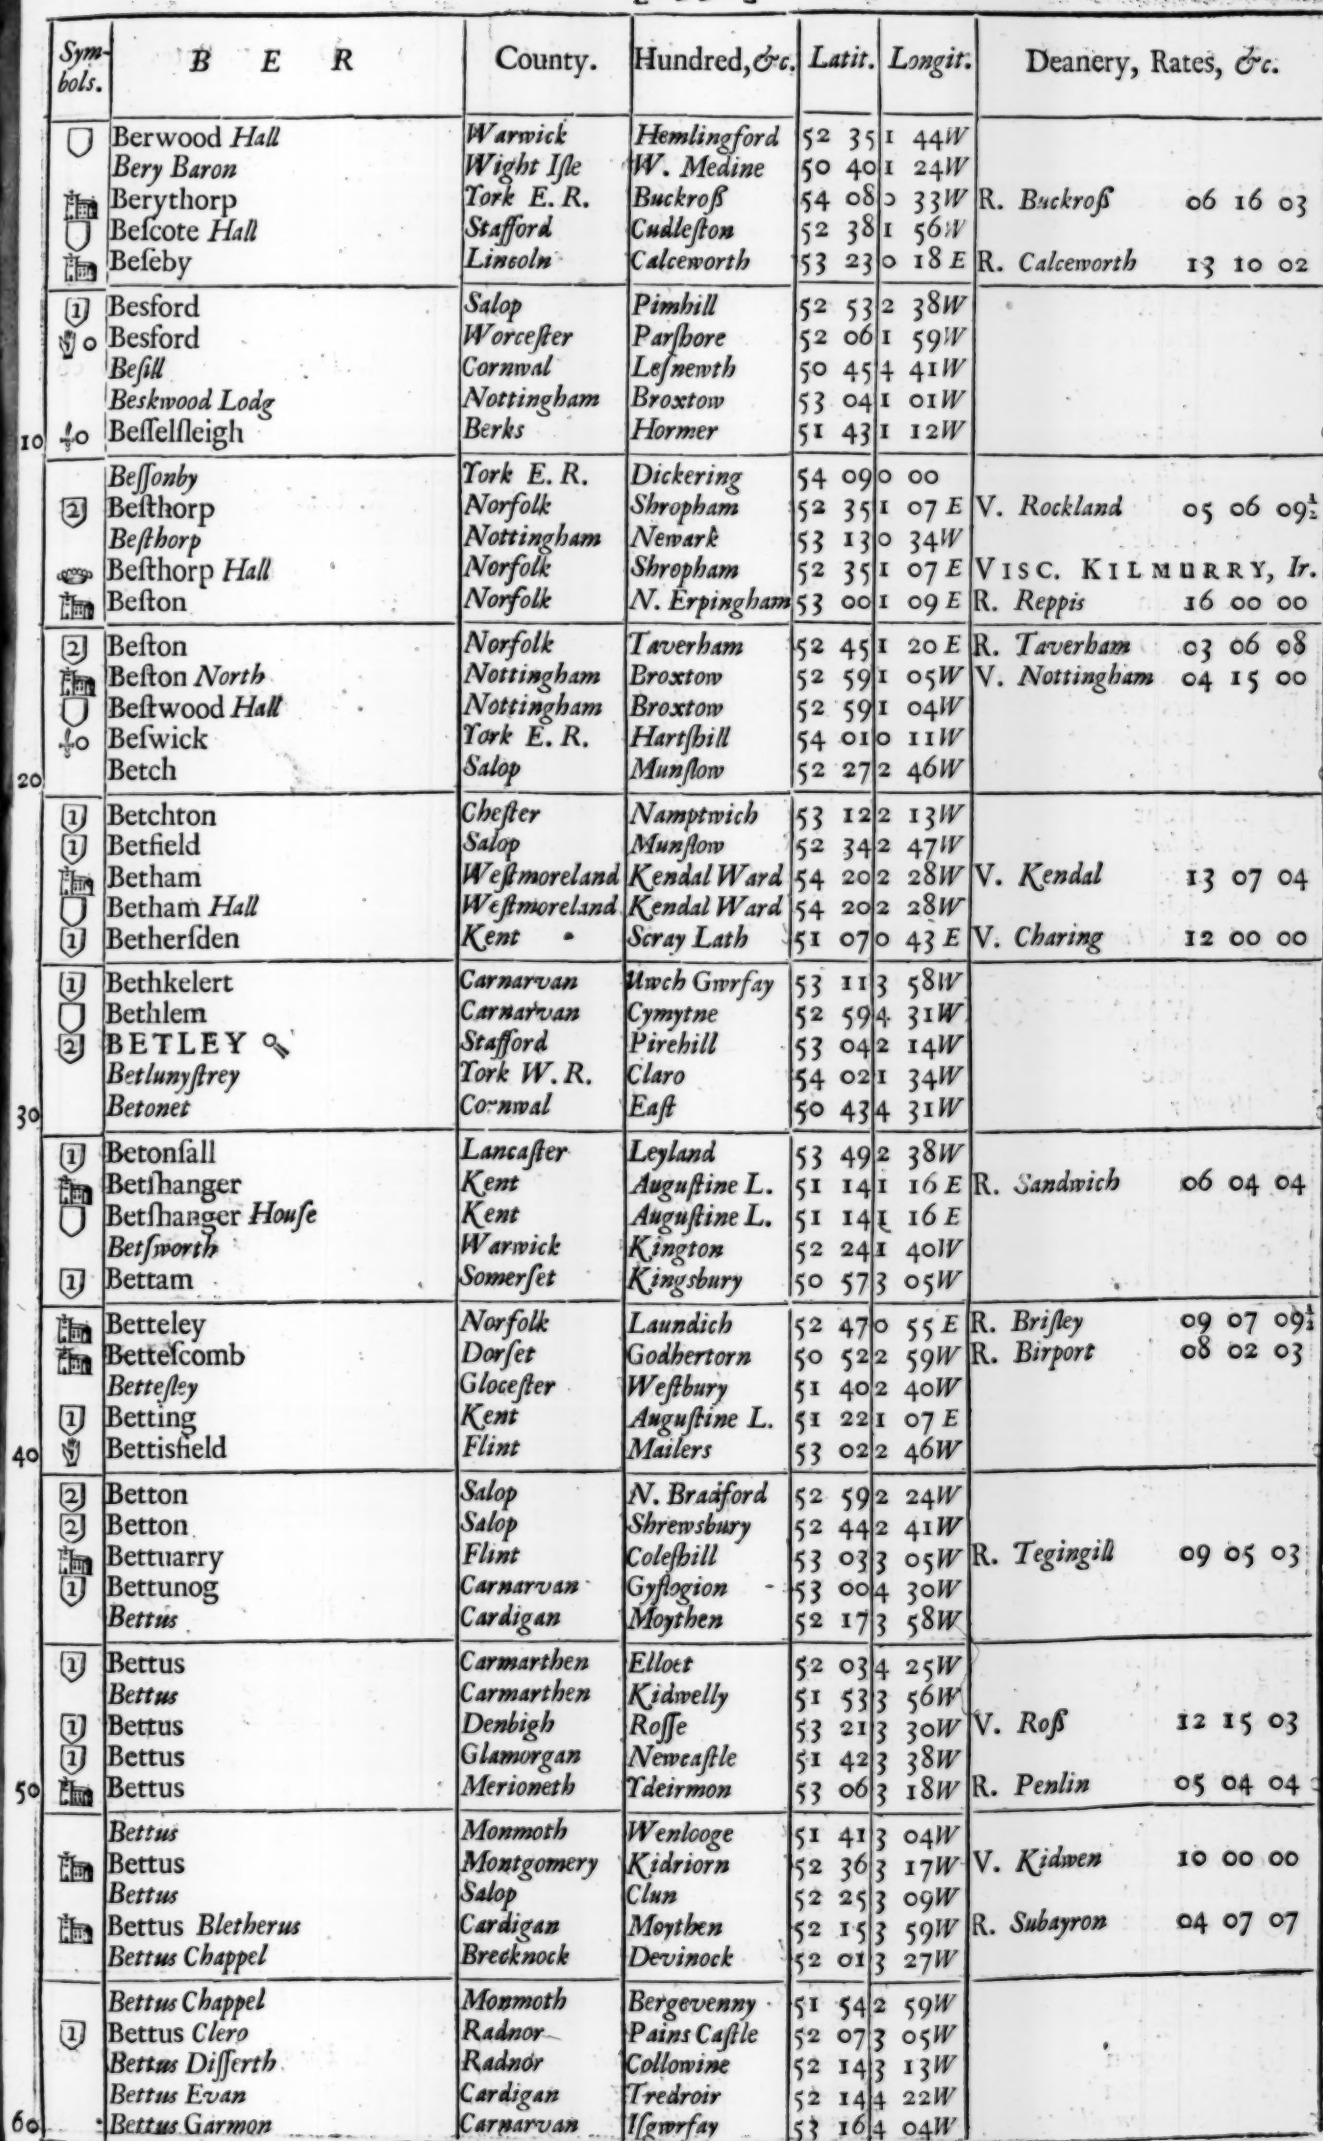 Symbols. B E R County. Hundred, &c. Latit. Longit. Deanery, Rates, &c.
Berwood Hall Warwick Hemlingford 52 35 1 44W
Bery Baron Wight Iſle W. Medine 50 40 1 24W
Berythorp York E. R. Buckroß 54 08 0 33W R. Buckroß 06 16 03
Beſcote Hall Stafford Cudleſton 52 38 1 56W
Beſeby Lincoln Calceworth 53 23 0 18 E R. Calceworth 13 10 02
1 Besford Salop Pimhill 52 53 2 38W
0 Besford Worceſter Parſhore 52 06 1 59W
Beſill Cornwal Leſnewth 50 45 4 41W
Beskwood Lodg Nottingham Broxtow 53 04 1 01W
10 0 Beſſelſleigh Berks Hormer 51 43 1 12W
Beſſonby York E. R. Dickering 54 09 0 00
2 Beſthorp Norfolk Shropham 52 35 1 07 E V. Rockland 05 06 09½
Beſthorp Nottingham Newark 53 13 0 34W
Beſthorp Hall Norfolk Shropham 52 35 1 07 E VISC. KILMURRY, Ir.
Beſton Norfolk N. Erpingham 53 00 1 09 E R. Reppis 16 00 00
2 Beſton Norfolk Taverham 52 45 1 20 E R. Taverham 03 06 08
Beſton North Nottingham Broxtow 52 59 1 05W V. Nottingham 04 15 00
Beſtwood Hall Nottingham Broxtow 52 59 1 04W
0 Beſwick York E. R. Hartſhill 54 01 0 11W
20 Betch Salop Munſlow 52 27 2 46W
1 Betchton Cheſter Namptwich 53 12 2 13W
1 Betfield Salop Munſlow 52 34 2 47W
Betham Weſtmoreland Kendal Ward 54 20 2 28W V. Kendal 13 07 04
Betham Hall Weſtmoreland Kendal Ward 54 20 2 28W
1 Betherſden Kent Scray Lath 51 07 0 43 E V. Charing 12 00 00
1 Bethkelert Carnarvan Uwch Gwrfay 53 11 3 58W
Bethlem Carnarvan Cymytne 52 59 4 31W
2 BETLEY Stafford Pirehill 53 04 2 14W
Betlunyſtrey York W. R. Claro 54 02 1 34W
30 Betonet Cornwal Eaſt 50 43 4 31W
1 Betonſall Lancaſter Leyland 53 49 2 38W
Betſhanger Kent Auguſtine L. 51 14 1 16 E R. Sandwich 06 04 04
Betſhanger Houſe Kent Auguſtine L. 51 14 1 16 E
Betſworth Warwick Kington 52 24 1 40W
1 Bettam Somerſet Kingsbury 50 57 3 05W
Betteley Norfolk Laundich 52 47 0 55 E R. Briſley 09 07 09½
Betteſcomb Dorſet Godhertorn 50 52 2 59W R. Birport 08 02 03
Betteſley Gloceſter Weſtbury 51 40 2 40W
1 Betting Kent Auguſtine L. 51 22 1 07 E
40 Bettisfield Flint Mailers 53 02 2 46W
2 Betton Salop N. Bradford 52 59 2 24W
2 Betton Salop Shrewsbury 52 44 2 41W
Bettuarry Flint Coleſhill 53 03 3 05W R. Tegingill 09 05 03
1 Bettunog Carnarvan Gyflogion 53 00 4 30W
Bettus Cardigan Moythen 52 17 3 58W
1 Bettus Carmarthen Elloet 52 03 4 25W
Bettus Carmarthen Kidwelly 51 53 3 56W
1 Bettus Denbigh Roſſe 53 21 3 30W V. Roß 12 15 03
1 Bettus Glamorgan Newcaſtle 51 42 3 38W
50 Bettus Merioneth Ydeirmon 53 06 3 18W R. Penlin 05 04 04
Bettus Monmoth Wenlooge 51 41 3 04W
Bettus Montgomery Kidriorn 52 36 3 17W V. Kidwen 10 00 00
Bettus Salop Clun 52 25 3 09W
Bettus Bletherus Cardigan Moythen 52 15 3 59W R. Subayron 04 07 07
Bettus Chappel Brecknock Devinock 52 01 3 27W
Bettus Chappel Monmoth Bergevenny 51 54 2 59W
1 Bettus Clero Radnor Pains Caſtle 52 07 3 05W
Bettus Diſſerth Radnor Collowine 52 14 3 13W
Bettus Evan Cardigan Tredroir 52 14 4 22W
60 Bettus Garmon Carnarvan Iſgwrfay 53 16 4 04W